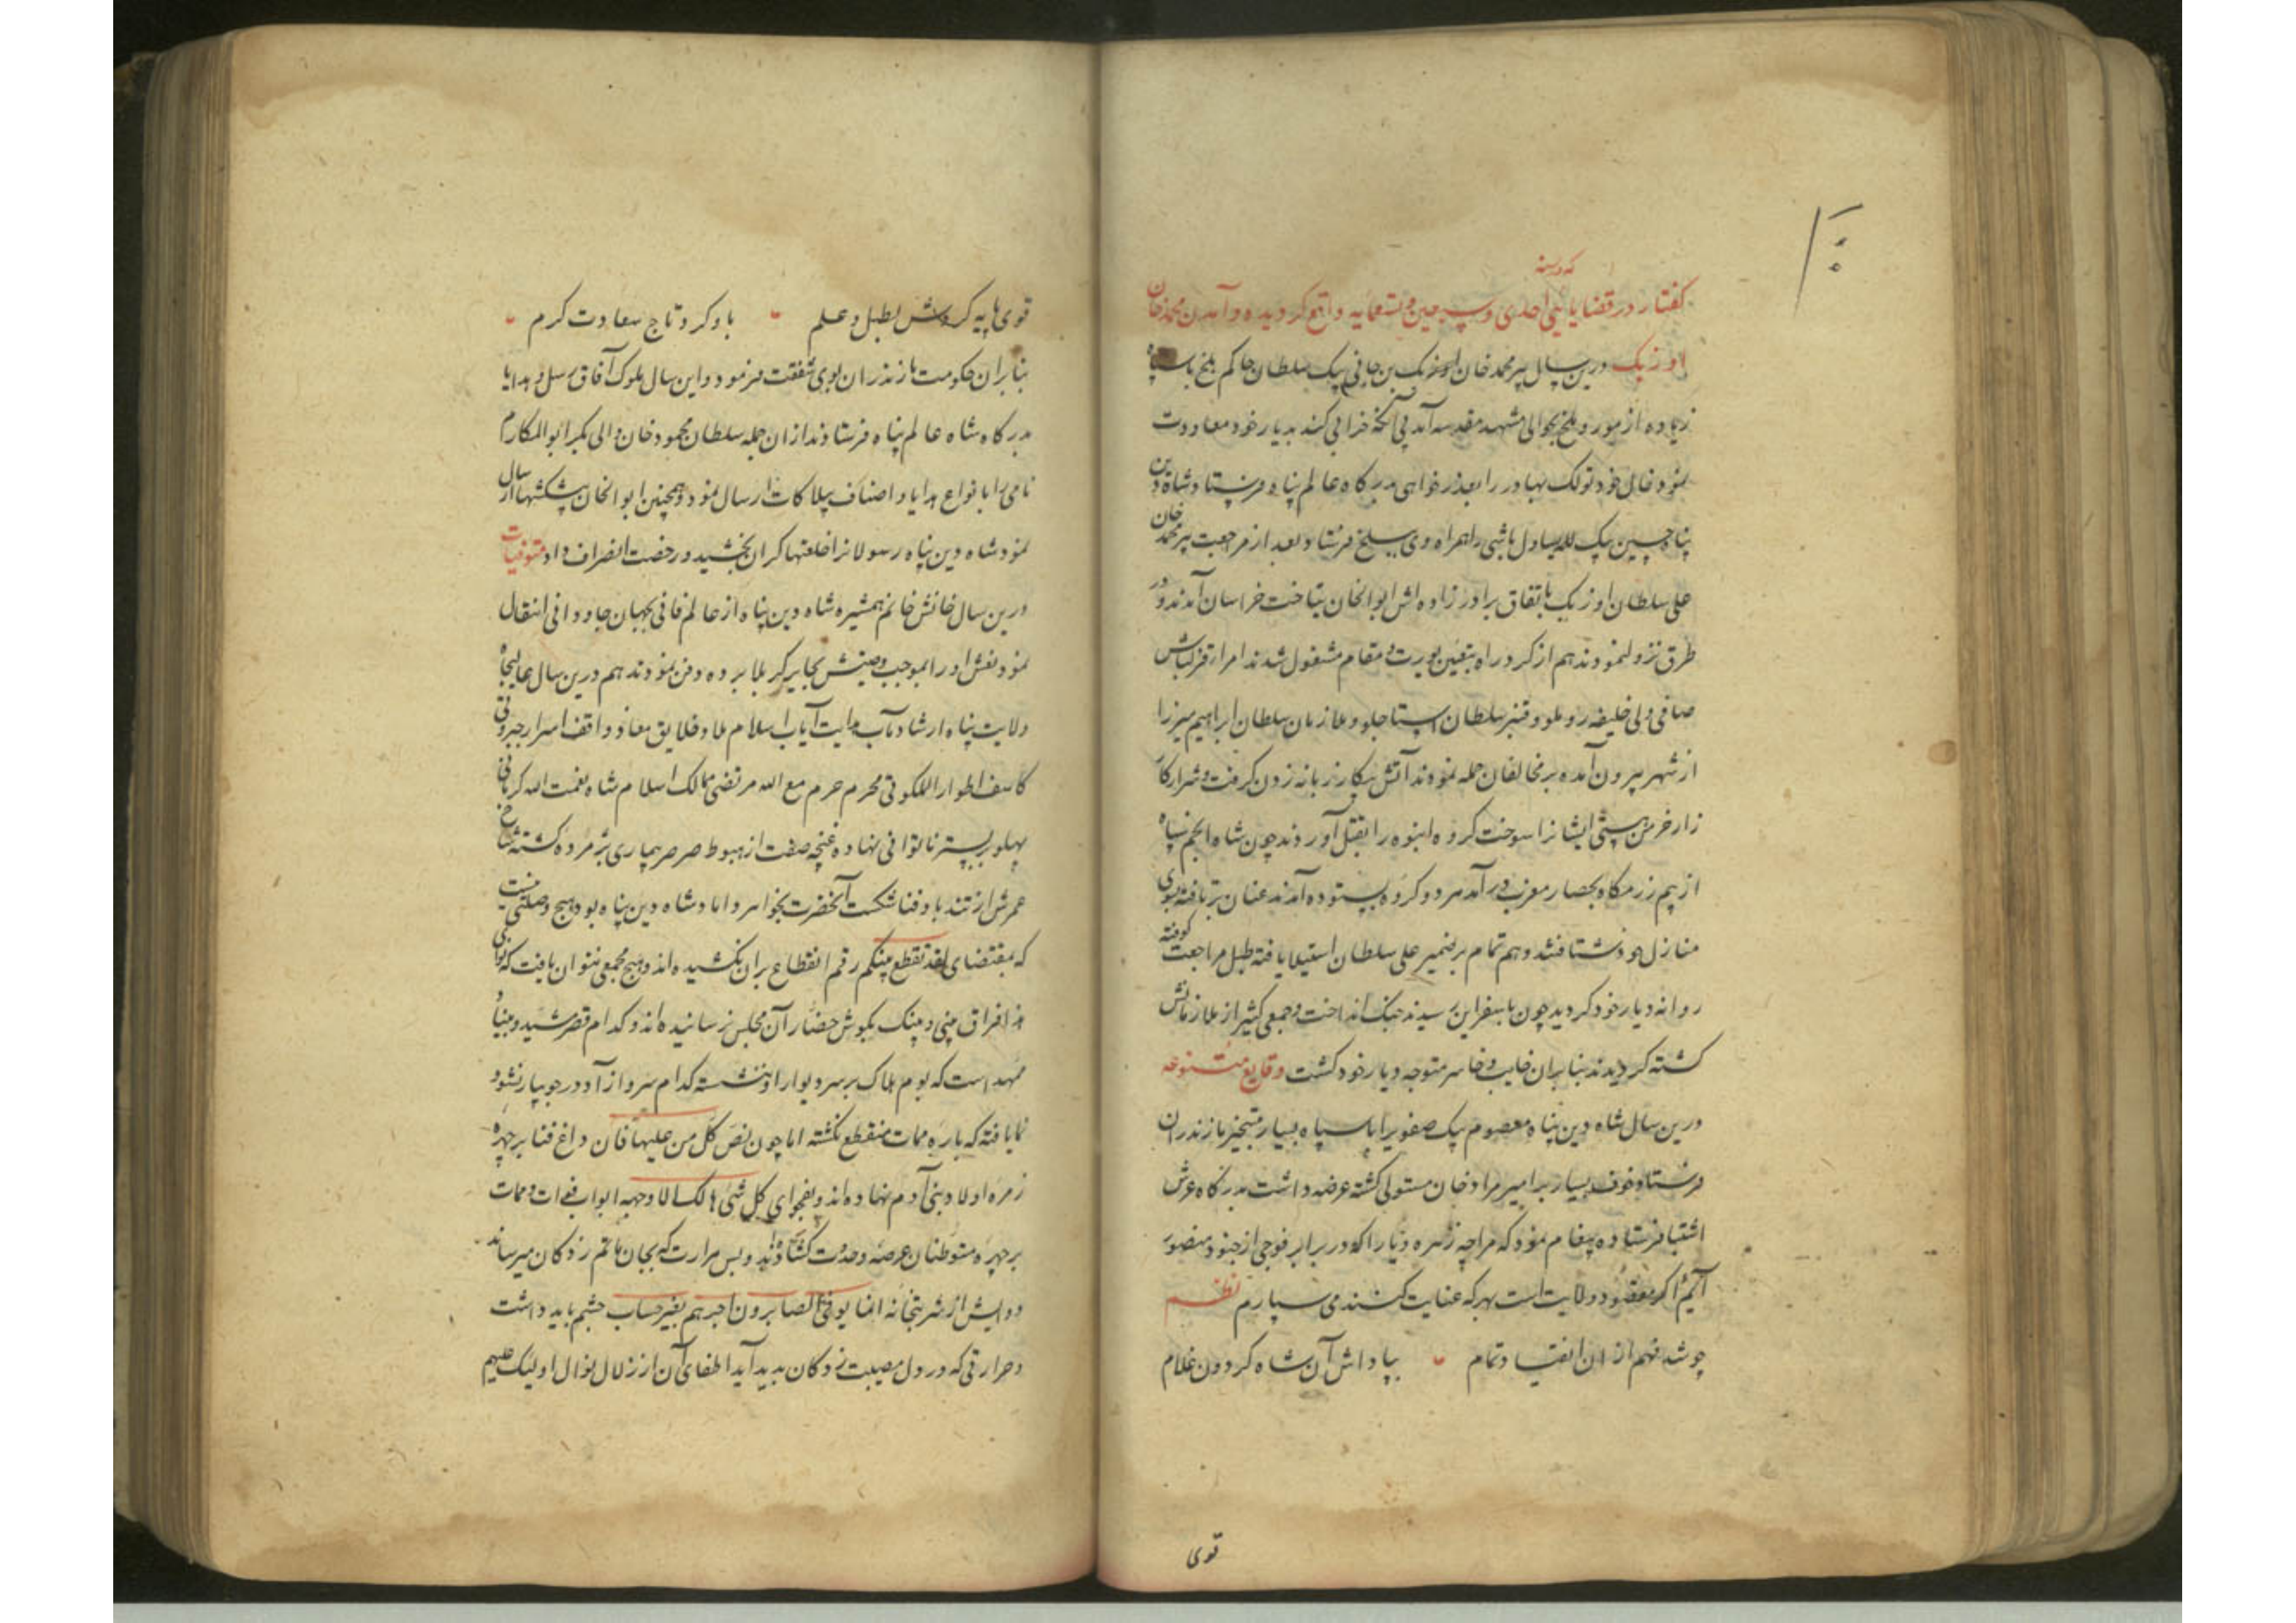 که در سنه
گفتار در قضایایی احدی و سبعین و تسعمایه واقع گردیده و آمدن محمد خان
اوزبک درین سال پیر محمد خان اوزبک بن جانی بیک سلطان حاکم بلخ با سپاه
زیاده از مور و ملخ بحوالی مشهد مقدسه آمد بی آنکه خرابی کند بدیار خود معاودت
نمود خال خود تولک بهادر را بعذرخواهی بدرگاه عالم پناه فرستاد شاه دین
پناه حسین بیک لله یساول باشی را همراه وی ببلخ فرستاد و بعد از مراجعت پیر محمد خان
علی سلطان اوزبک باتفاق برادرزاده اش ابوالخان بتاخت خراسان آمدند و در
طرق نزول نمودند هم از گرد راه بتعین یورت و مقام مشغول شدند امراء قزلباش
صافی ولی خلیفه روملو و قنبر سلطان استاجلو و ملازمان سلطان ابراهیم میرزا
از شهر بیرون آمده بر مخالفان حمله نمودند آتش پیکار زبانه زدن گرفت و شرار کار
زار خرمن هستی ایشانرا سوخت گروه انبوه را بقتل آوردند چون شاه انجم سپاه
از بیم رزمگاه بحصار مغرب درآمد هر دو گروه بستوده آمدند عنان برتافته بسوی
منازل خود شتافتند و هم تمام بر ضمیر علی سلطان استیلا یافته طبل مراجعت کوفته
روانه دیار خود گردید چون باسفراین رسیدند جنگ انداخت و جمعی کثیر از ملازمانش
کشته گردیدند بنابران خایب و خاسر متوجه دیار خود گشت وقایع متنوعه
درین سال شاه دین پناه معصوم بیک صفویرا با سپاه بسیار بتسخیر مازندران
فرستاد خوف بسیار بر امیر مراد خان مستولی گشته عرضه داشت بدرگاه عرش
اشتباه فرستاده پیغام نمود که مرا چه زهره و یارا که در برابر فوجی از جنود منصور
آیم اگر مقصود ولایت است بهر که عنایت کنند می سپارم نظم
چو شد فهم از ان انقیاد تمام بپاداش آن شاه گردون غلام
قوی
قوی پایه کردش بطبل و علم باو کرد تاج سعادت کرم
بنابران حکومت مازندران بوی شفقت فرمود و این سال ملوک آفاق رسل و هدایا
بدرگاه شاه عالم پناه فرستادند ازان جمله سلطان محمود خان والی بکر ابوالمکارم
نامی را با انواع هدایا و اصناف بیلاکات ارسال نمود و همچنین ابوالخان پیشکشها ارسال
نمود شاه دین پناه رسولانرا خلعتها گران بخشید و رخصت انصراف داد متوفیات
درین سال خانش خانم همشیره شاه دین پناه از عالم فانی بجهان جاودانی انتقال
نمود نعش او را بموجب وصیتش بحایر کربلا برده دفن نمودند هم درین سال عالیجاه
ولایت پناه ارشاد مآب هدایت آیاب اسلام ملاذ خلایق معاذ واقف اسرار جبروتی
کاشف اطوار الملکوتی محرم حرم مع الله مرتضی ممالک اسلام شاه نعمت الله کرمانی
پهلو بر بستر ناتوانی نهاده غنچه صفت از هبوط صرصر بیماری پژمرده گشته شاخ
عمرش از تند باد فنا شکست آنحضرت بخواهر داماد شاه دین پناه بود هیچ وصلتی نیست
که بمقتضای لقد تقطع بینکم رقم انقطاع بران نکشیده اند و هیچ مجمعی نتوان یافت که نوای
هذا فراق بینی و بینک بگوش حضار آن مجلس نرسانیده اند و کدام قصر مشید و بنیاد
ممهد است که بوم هلاک بر سر دیوار او ننشسته کدام سرو آزاد در جویبار نشو و
نما یافته که باره ممات منقطع نگشته اما چون نص کل من علیها فان داغ فنا بر چهره
زمره اولاد بنی آدم نهاده اند و بفحوای کل شیء هالک الا وجهه ابواب فوات و ممات
بر چهره متوطنان عرصه وحدت گشاده اند و بس مرارت که بجان ماتم زدگان میرساند
دوایش از شربتخانه انما یوفی الصابرون اجرهم بغیر حساب چشم باید داشت
و حرارتی که در دل مصیبت زدگان بدید آید اطفای آن از زلال نوال اولیک علیهم